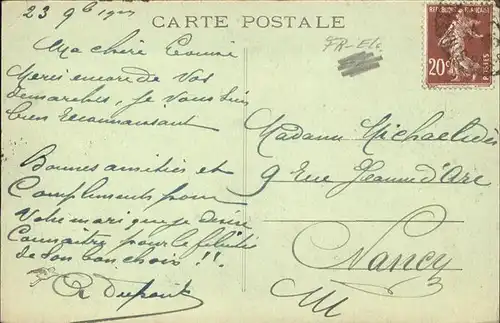 23 9bre
CARTE POSTALE
Ma chère Louise
Merci encore de Vos
demarches, je Vous suis
bien reconnaissant
Bonnes amitiés et
Compliments pour
Votre mari que je désire
Connaître pour le féliciter
de son bon choix !!
Dupont
FR-Etc
REPUBLIQUE FRANÇAISE
20c
POSTES
Madame
9 Rue Jeanne d'Arc
Nancy